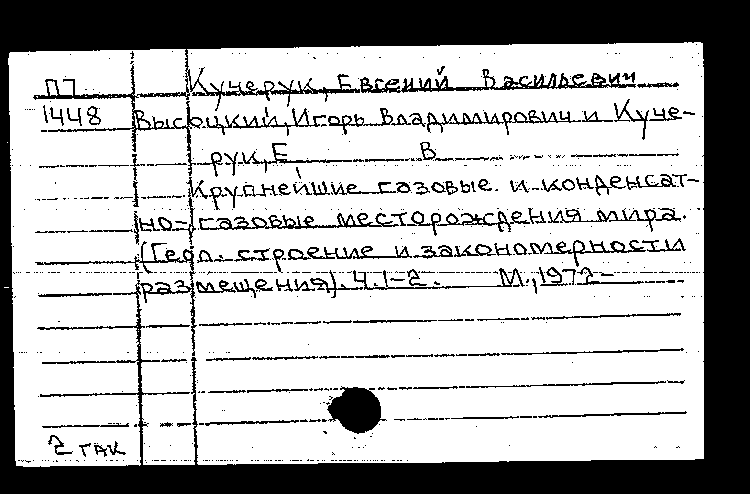 П7 Кучерук, Евгений Васильевич
1448 Высоцкий, Игорь Владимирович и Куче-
рук, Е. В
Крупнейшие газовые и конденсат-
но-газовые месторождения мира.
(Геол. строение и закономерности
размещения). Ч.1-2. М., 1972-
2 гак